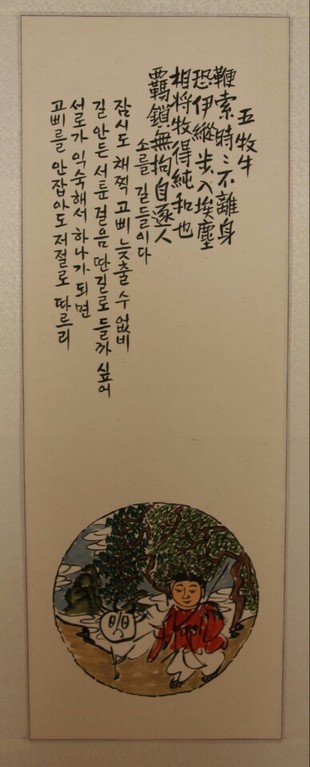 五牧牛
鞭索時〻不離身
恐伊縱步入埃塵
相將牧得純和也
覊鎖無拘自逐人
소를 길들이다
잠시도 채찍 고삐 늦출 수 없네
길 안든 서툰 걸음 딴길로 들까 싶어
서로가 익숙해서 하나가 되면
고삐를 안잡아도 저절로 따르리